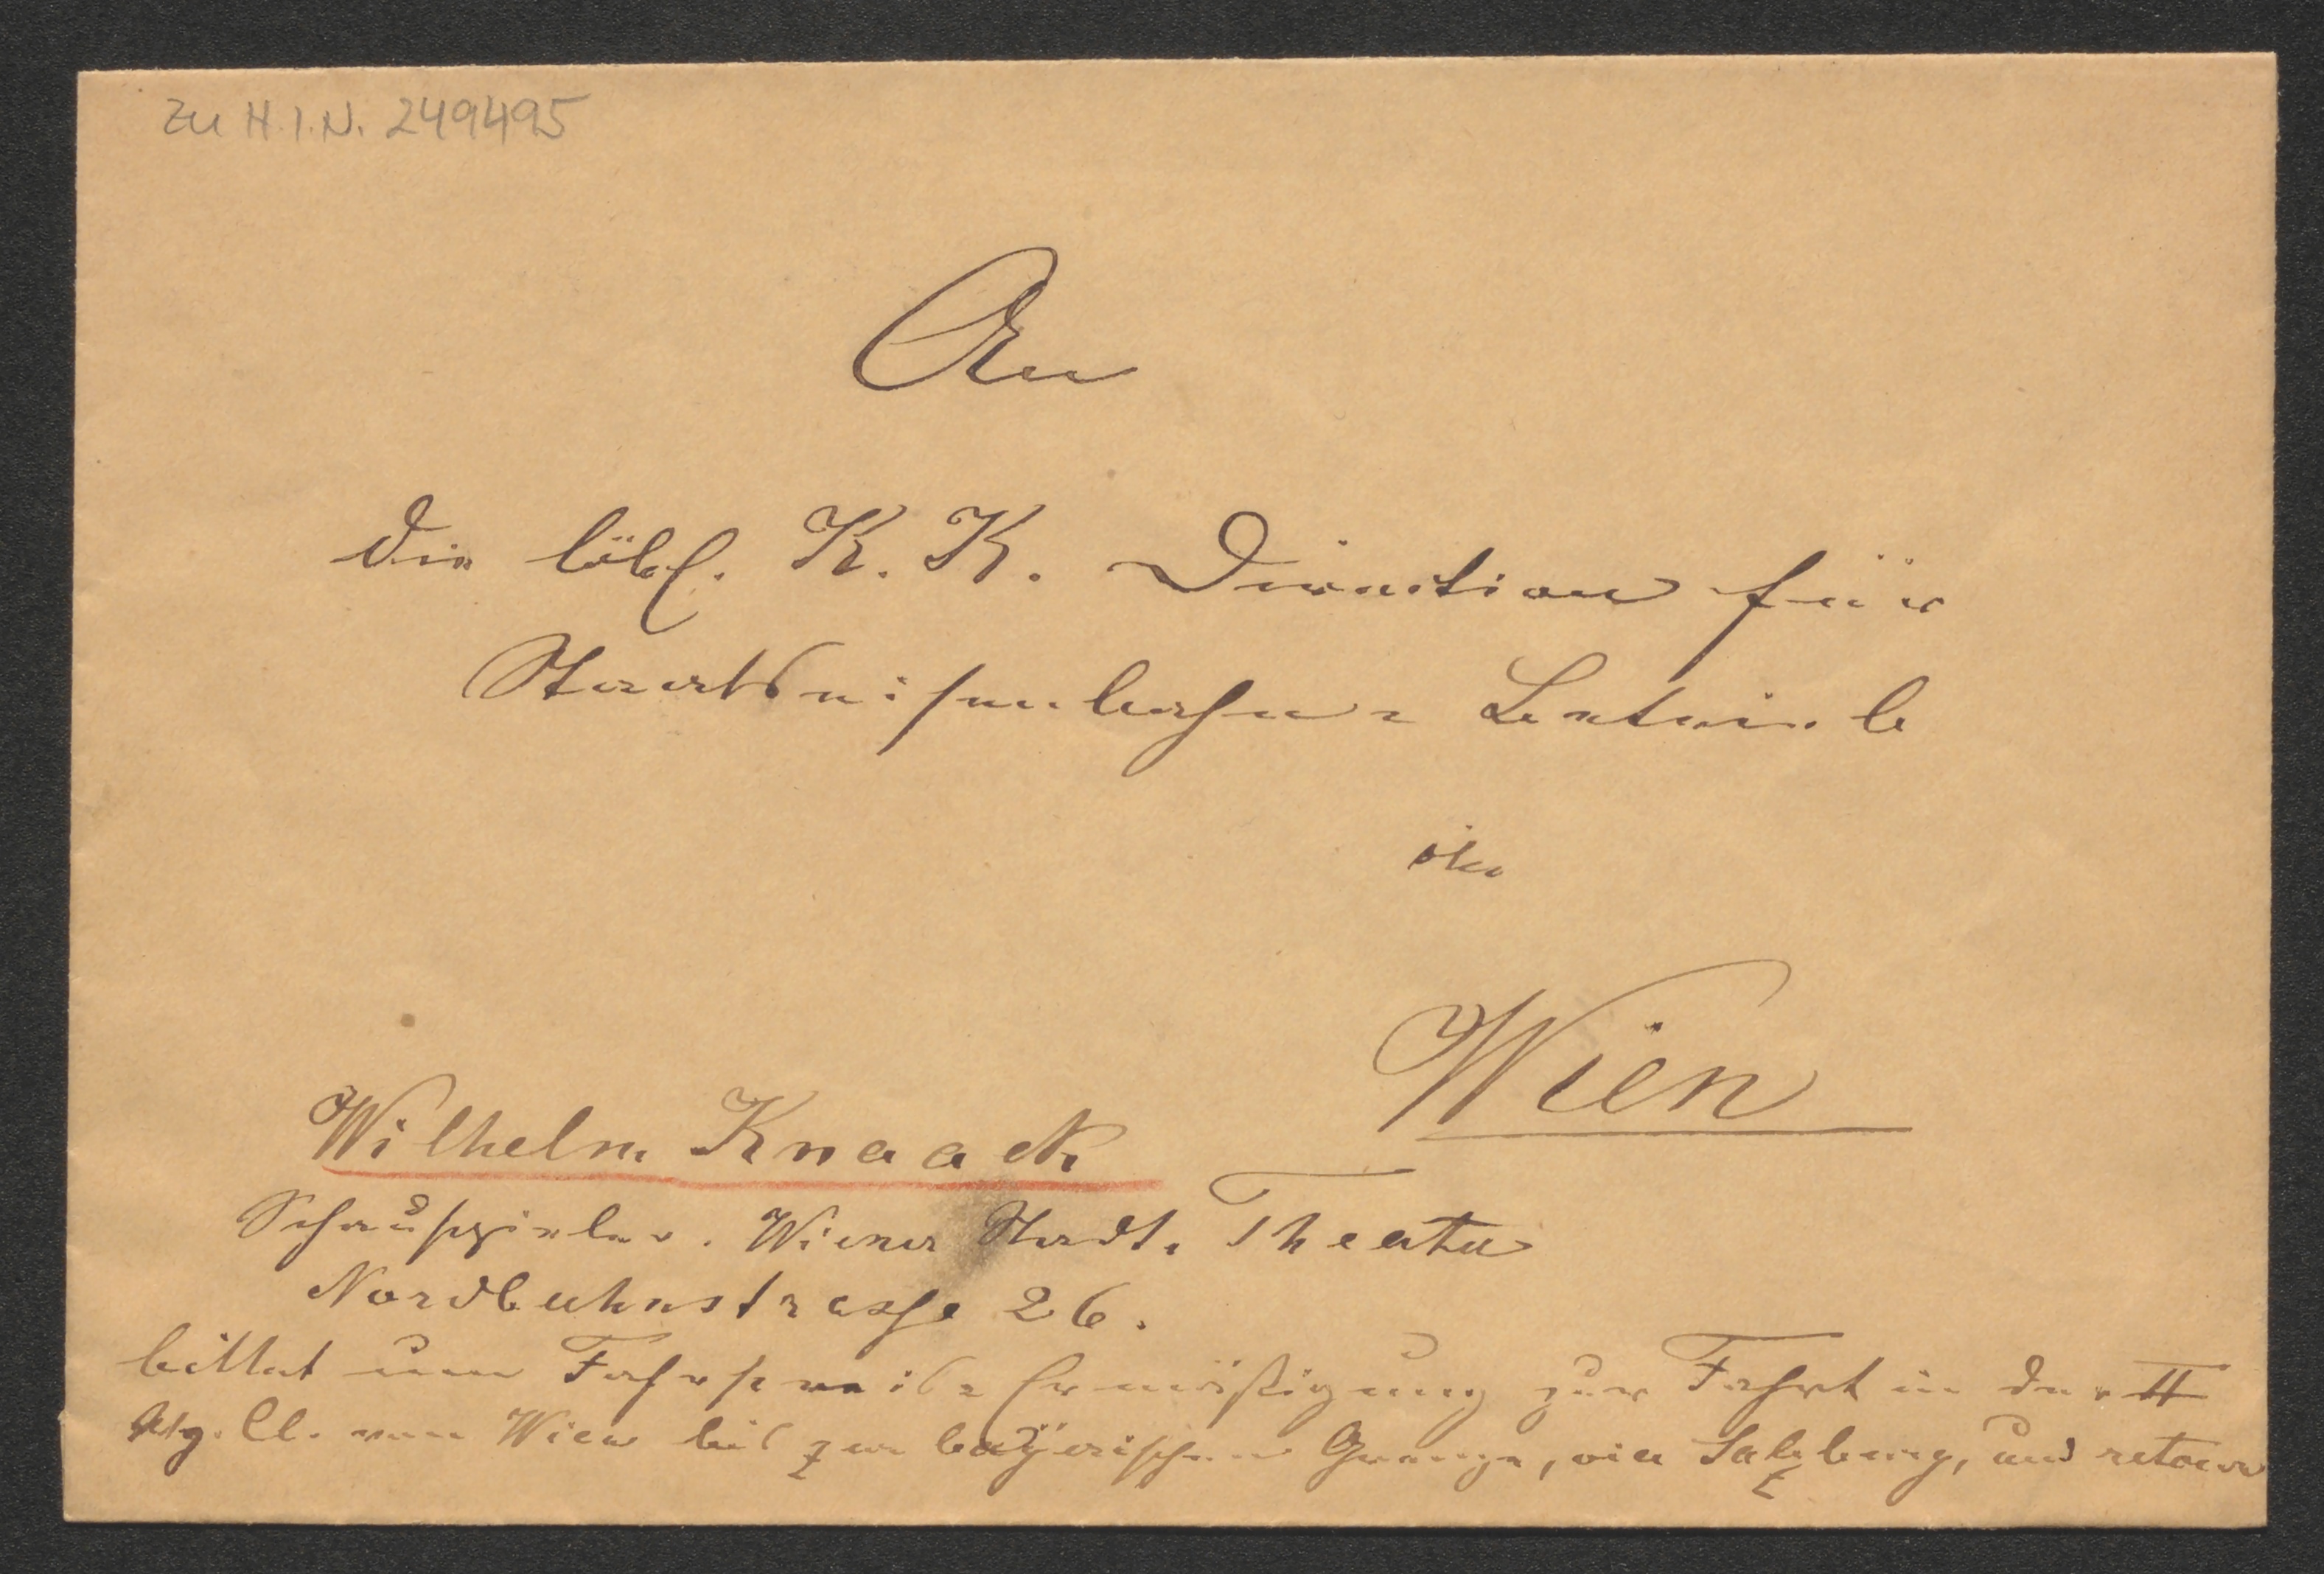 Zu H.I.N. 249495
An
die löbl. K. K. Direction für
Staatseisenbahn= Betrieb
in
Wien
Wilhelm Knaack
Schauspieler. Wiener Stadt. Theater
Nordbahnstrasse 26.
bittet um Fahrpreis= Ermäßigung zur Fahrt in der II
Wg. Cl. von Wien bis zur bayerischen Grenze, via Salzburg, und retour